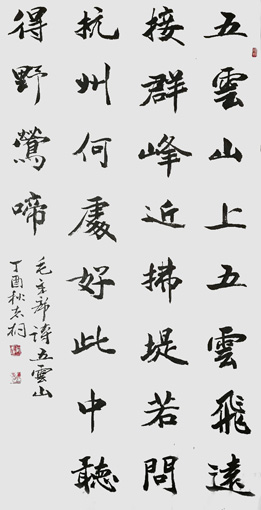 五雲山上五雲飛遠
接群峰近拂堤若問
杭州何處好此中聽
得野鶯啼
毛主席詩五雲山
丁酉秋志桐